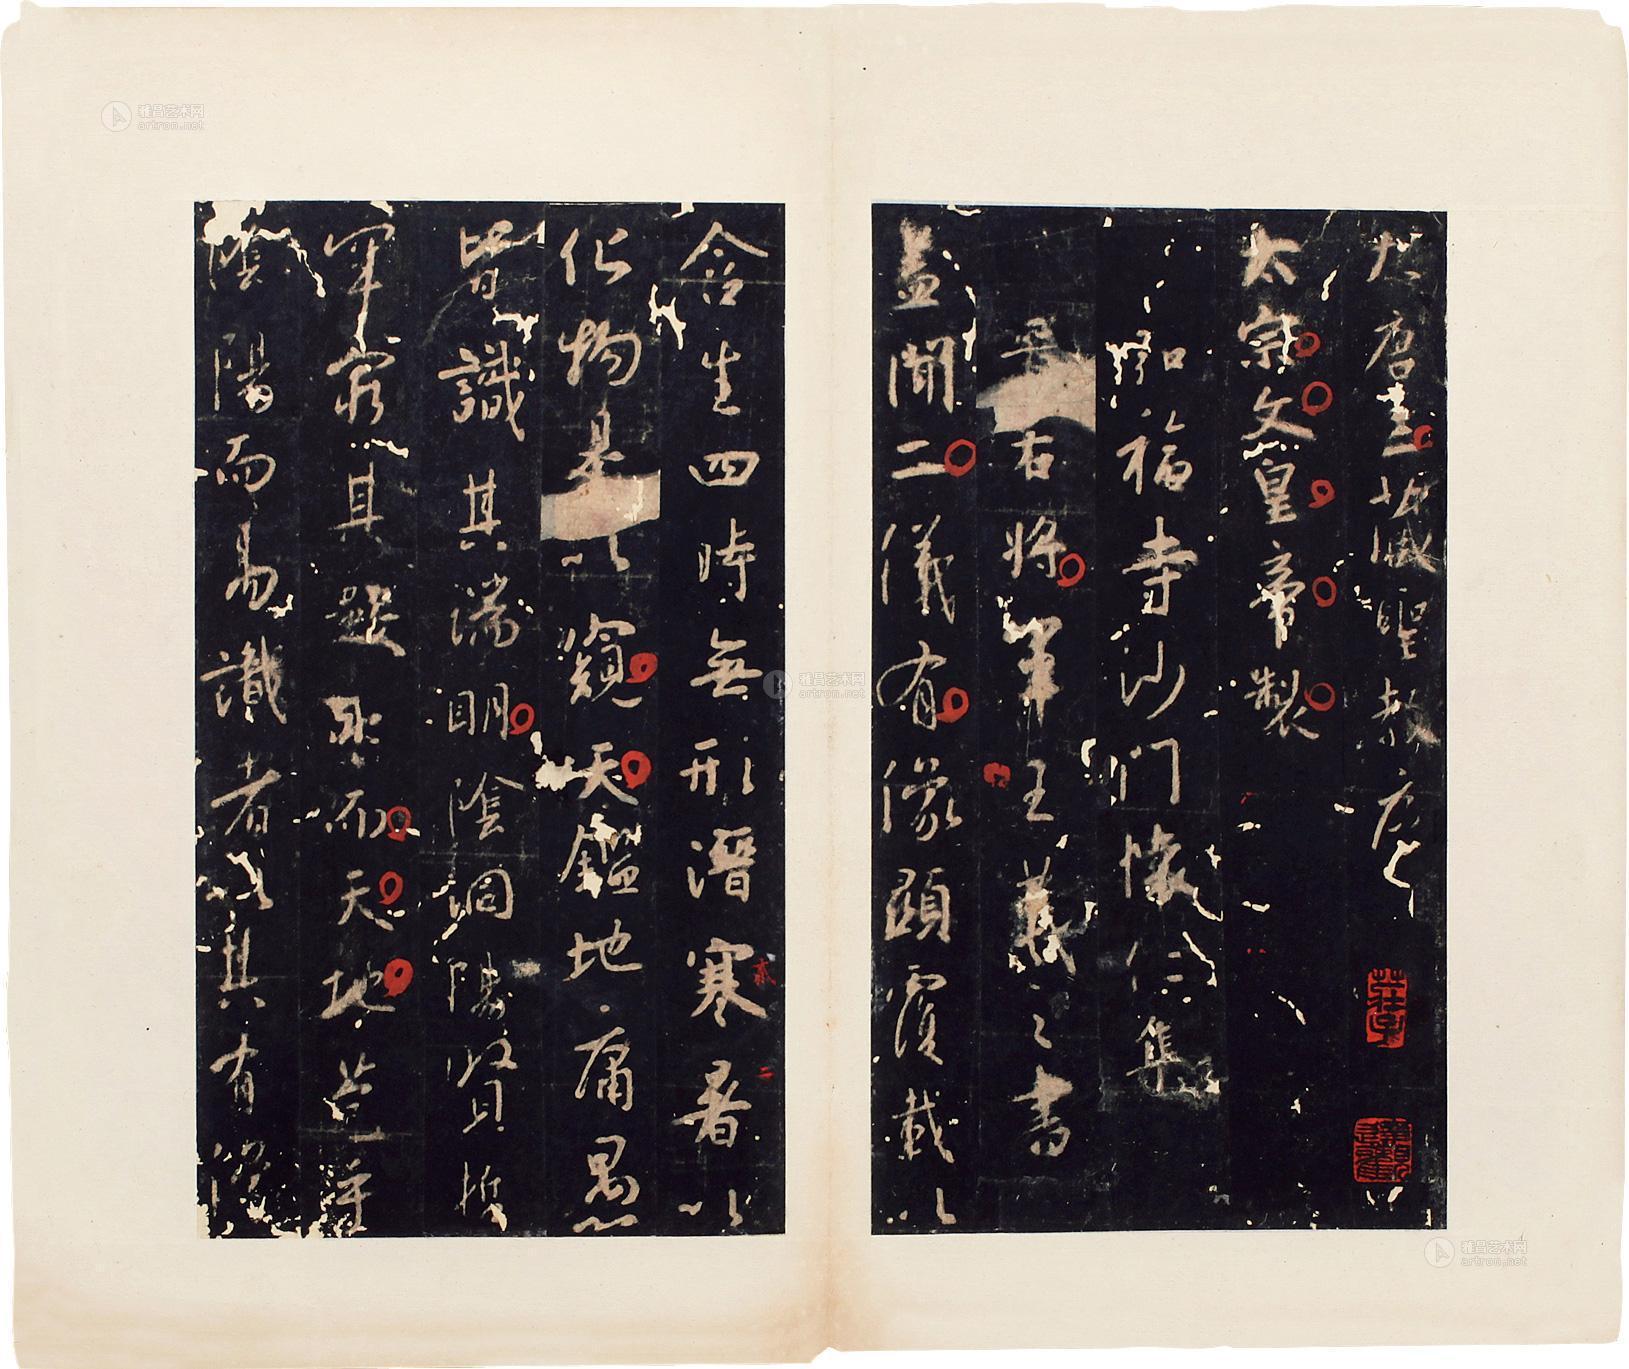 大唐三藏聖教序
太宗文皇帝製
弘福寺沙門懷仁集
晉右將軍王羲之書
蓋聞二儀有像顯覆載以
含生四時無形潛寒暑以
化物是以窺天鑑地庸愚
皆識其端明陰洞陽賢哲
罕窮其數然而天地苞乎
陰陽而易識者以其有像
二
雅昌艺术网
artron.net
雅昌艺术网
artron.net
雅昌艺术网
artron.net